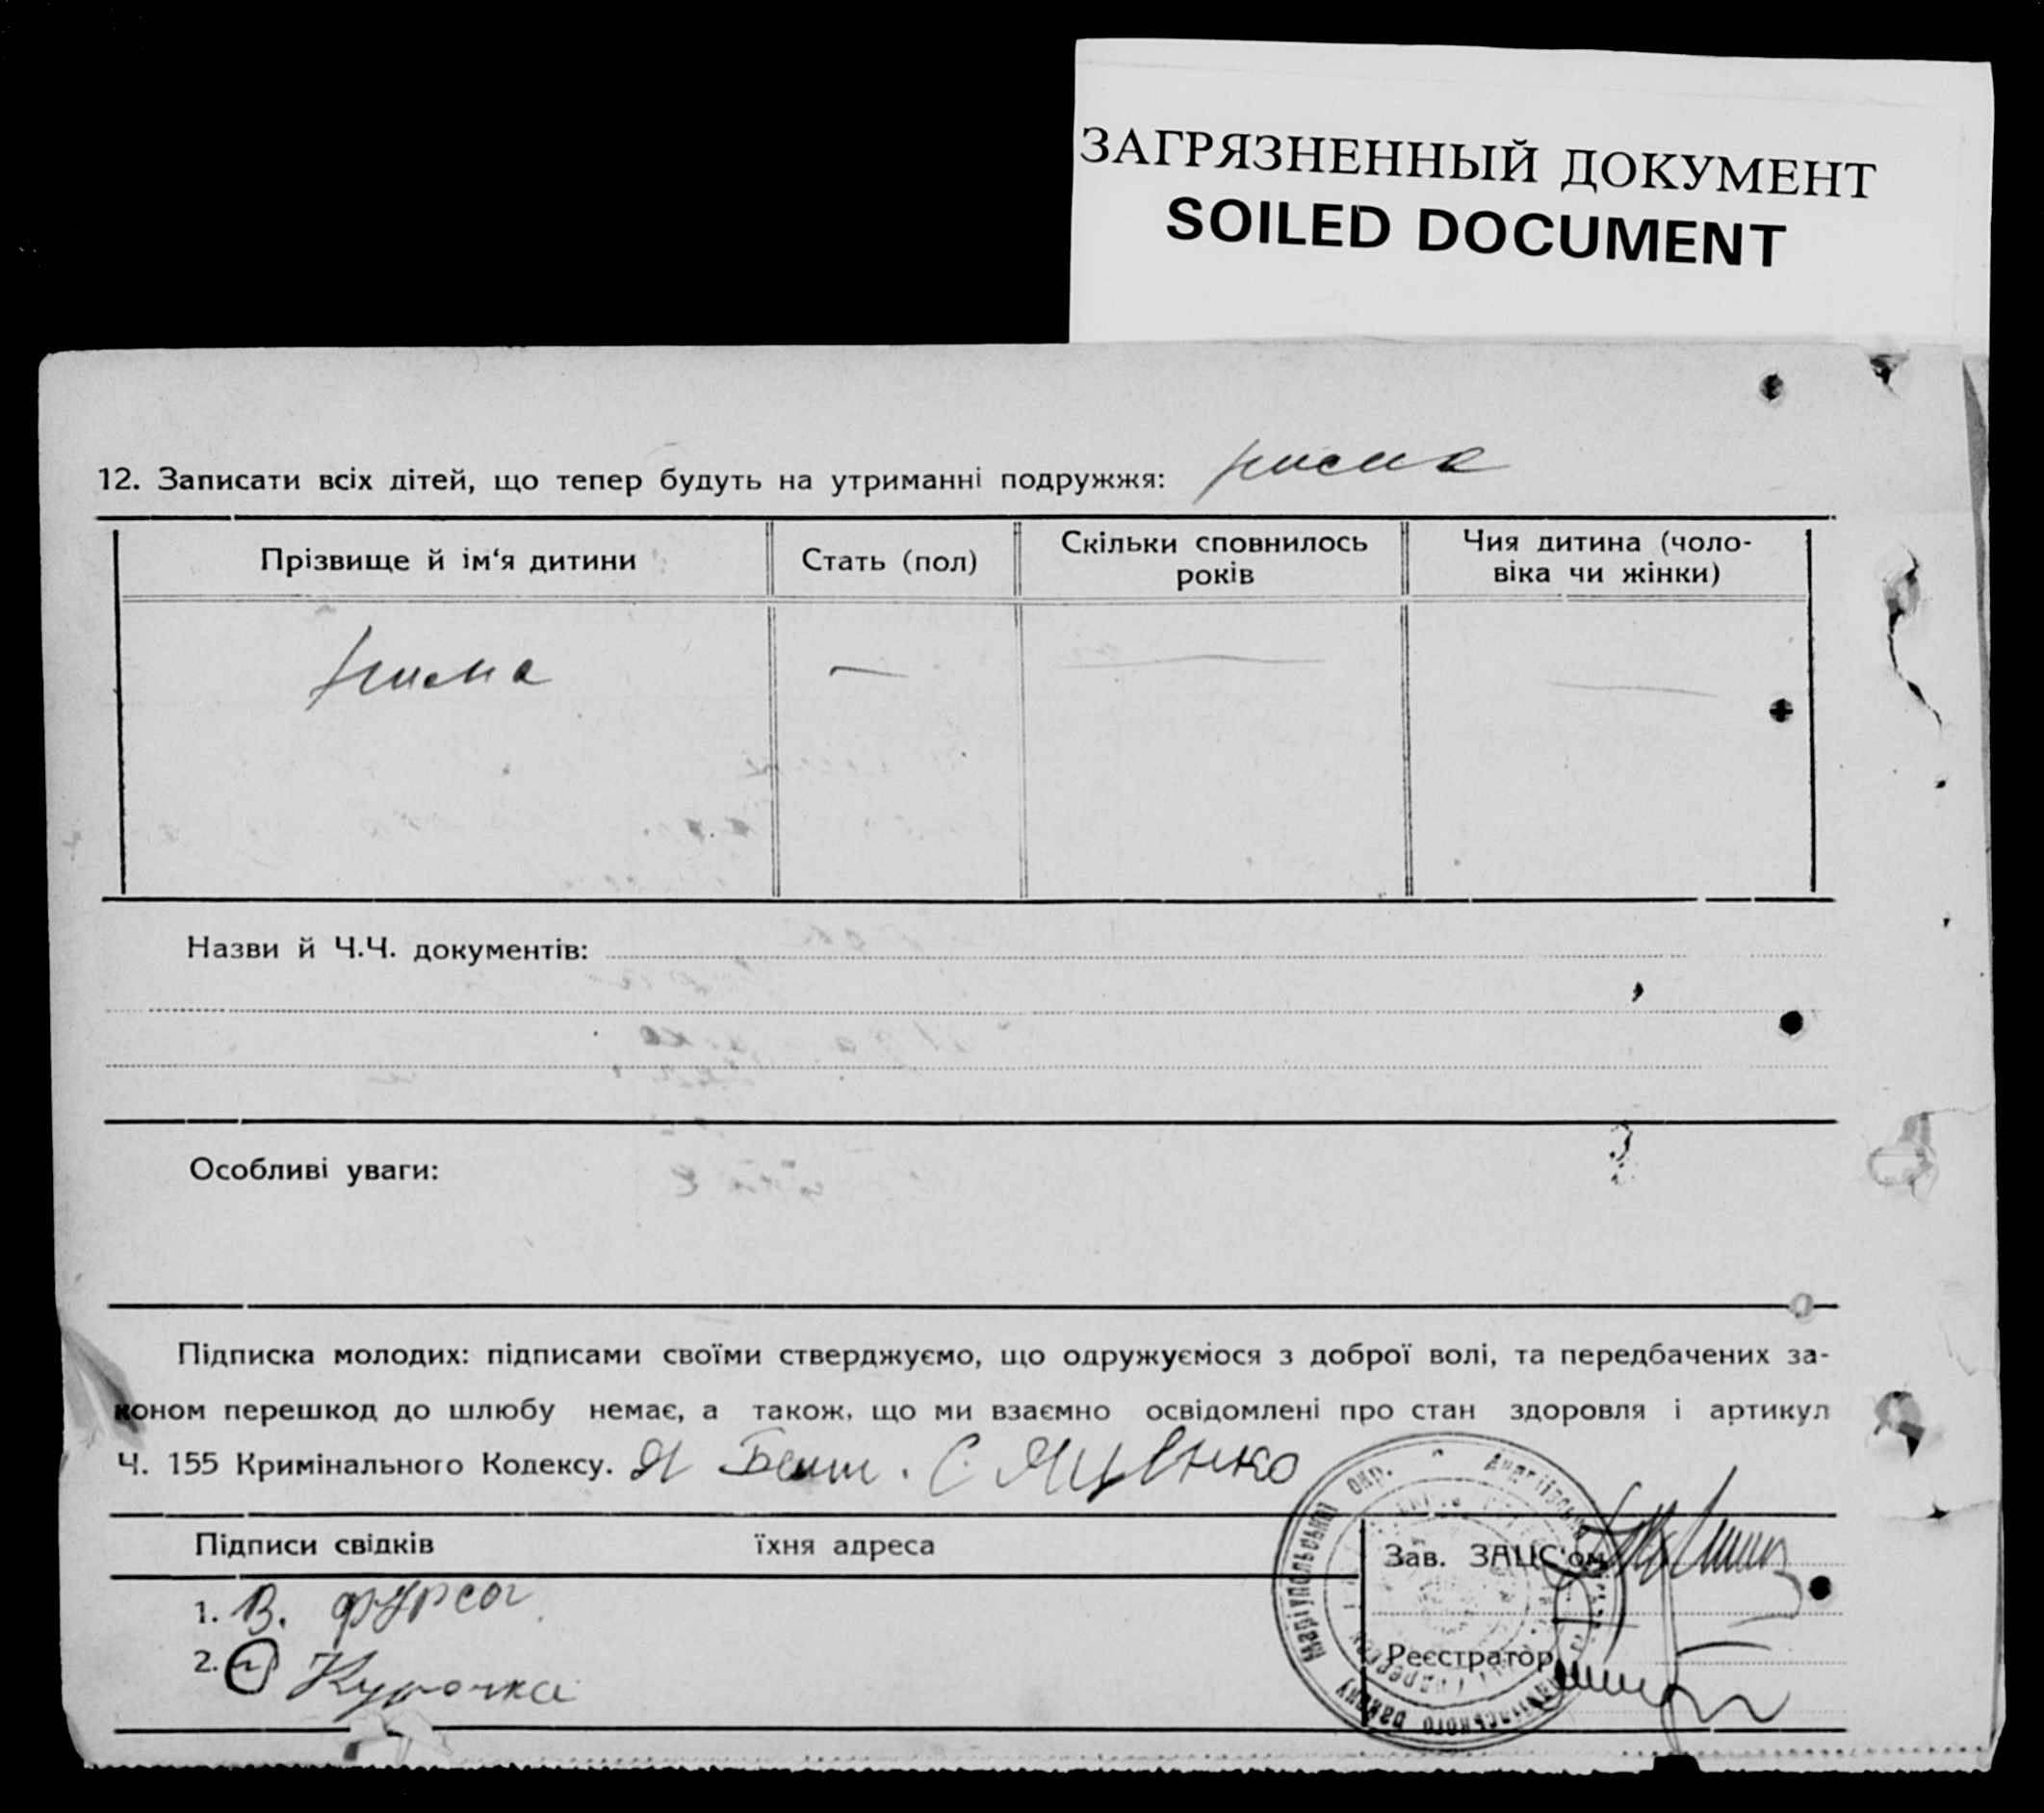 ЗАГРЯЗНЕННЫЙ ДОКУМЕНТ
SOILED DOCUMENT
12. Записати всіх дітей, що тепер будуть на утриманні подружжя: нема
Прізвище й ім‘я дитини
Стать (пол)
Скільки сповнилось
років
Чия дитина (чоло-
віка чи жінки)
нема — — —
Назви й Ч.Ч. документів:
Особливі уваги:
Підписка молодих: підписами своїми стверджуємо, що одружуємося з доброї волі, та передбачених за-
коном перешкод до шлюбу немає, а також, що ми взаємно освідомлені про стан здоровля і артикул
Ч. 155 Кримінального Кодексу. С. Яценко
Підписи свідків їхня адреса
Зав. ЗАЦС‘ом
1. В. Фурса
2. Курочка
Реєстратор
Маріупольської окр.
району